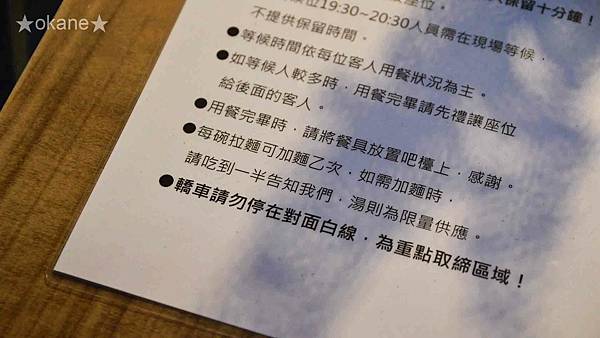 ★okane★
保留十分鐘！
位19:30~20:30人員需在現場等候，
不提供保留時間。
●等候時間依每位客人用餐狀況為主。
●如等候人較多時，用餐完畢請先禮讓座位
給後面的客人。
●用餐完畢時，請將餐具放置吧檯上，感謝。
●每碗拉麵可加麵乙次，如需加麵時，
請吃到一半告知我們，湯則為限量供應。
●轎車請勿停在對面白線，為重點取締區域！